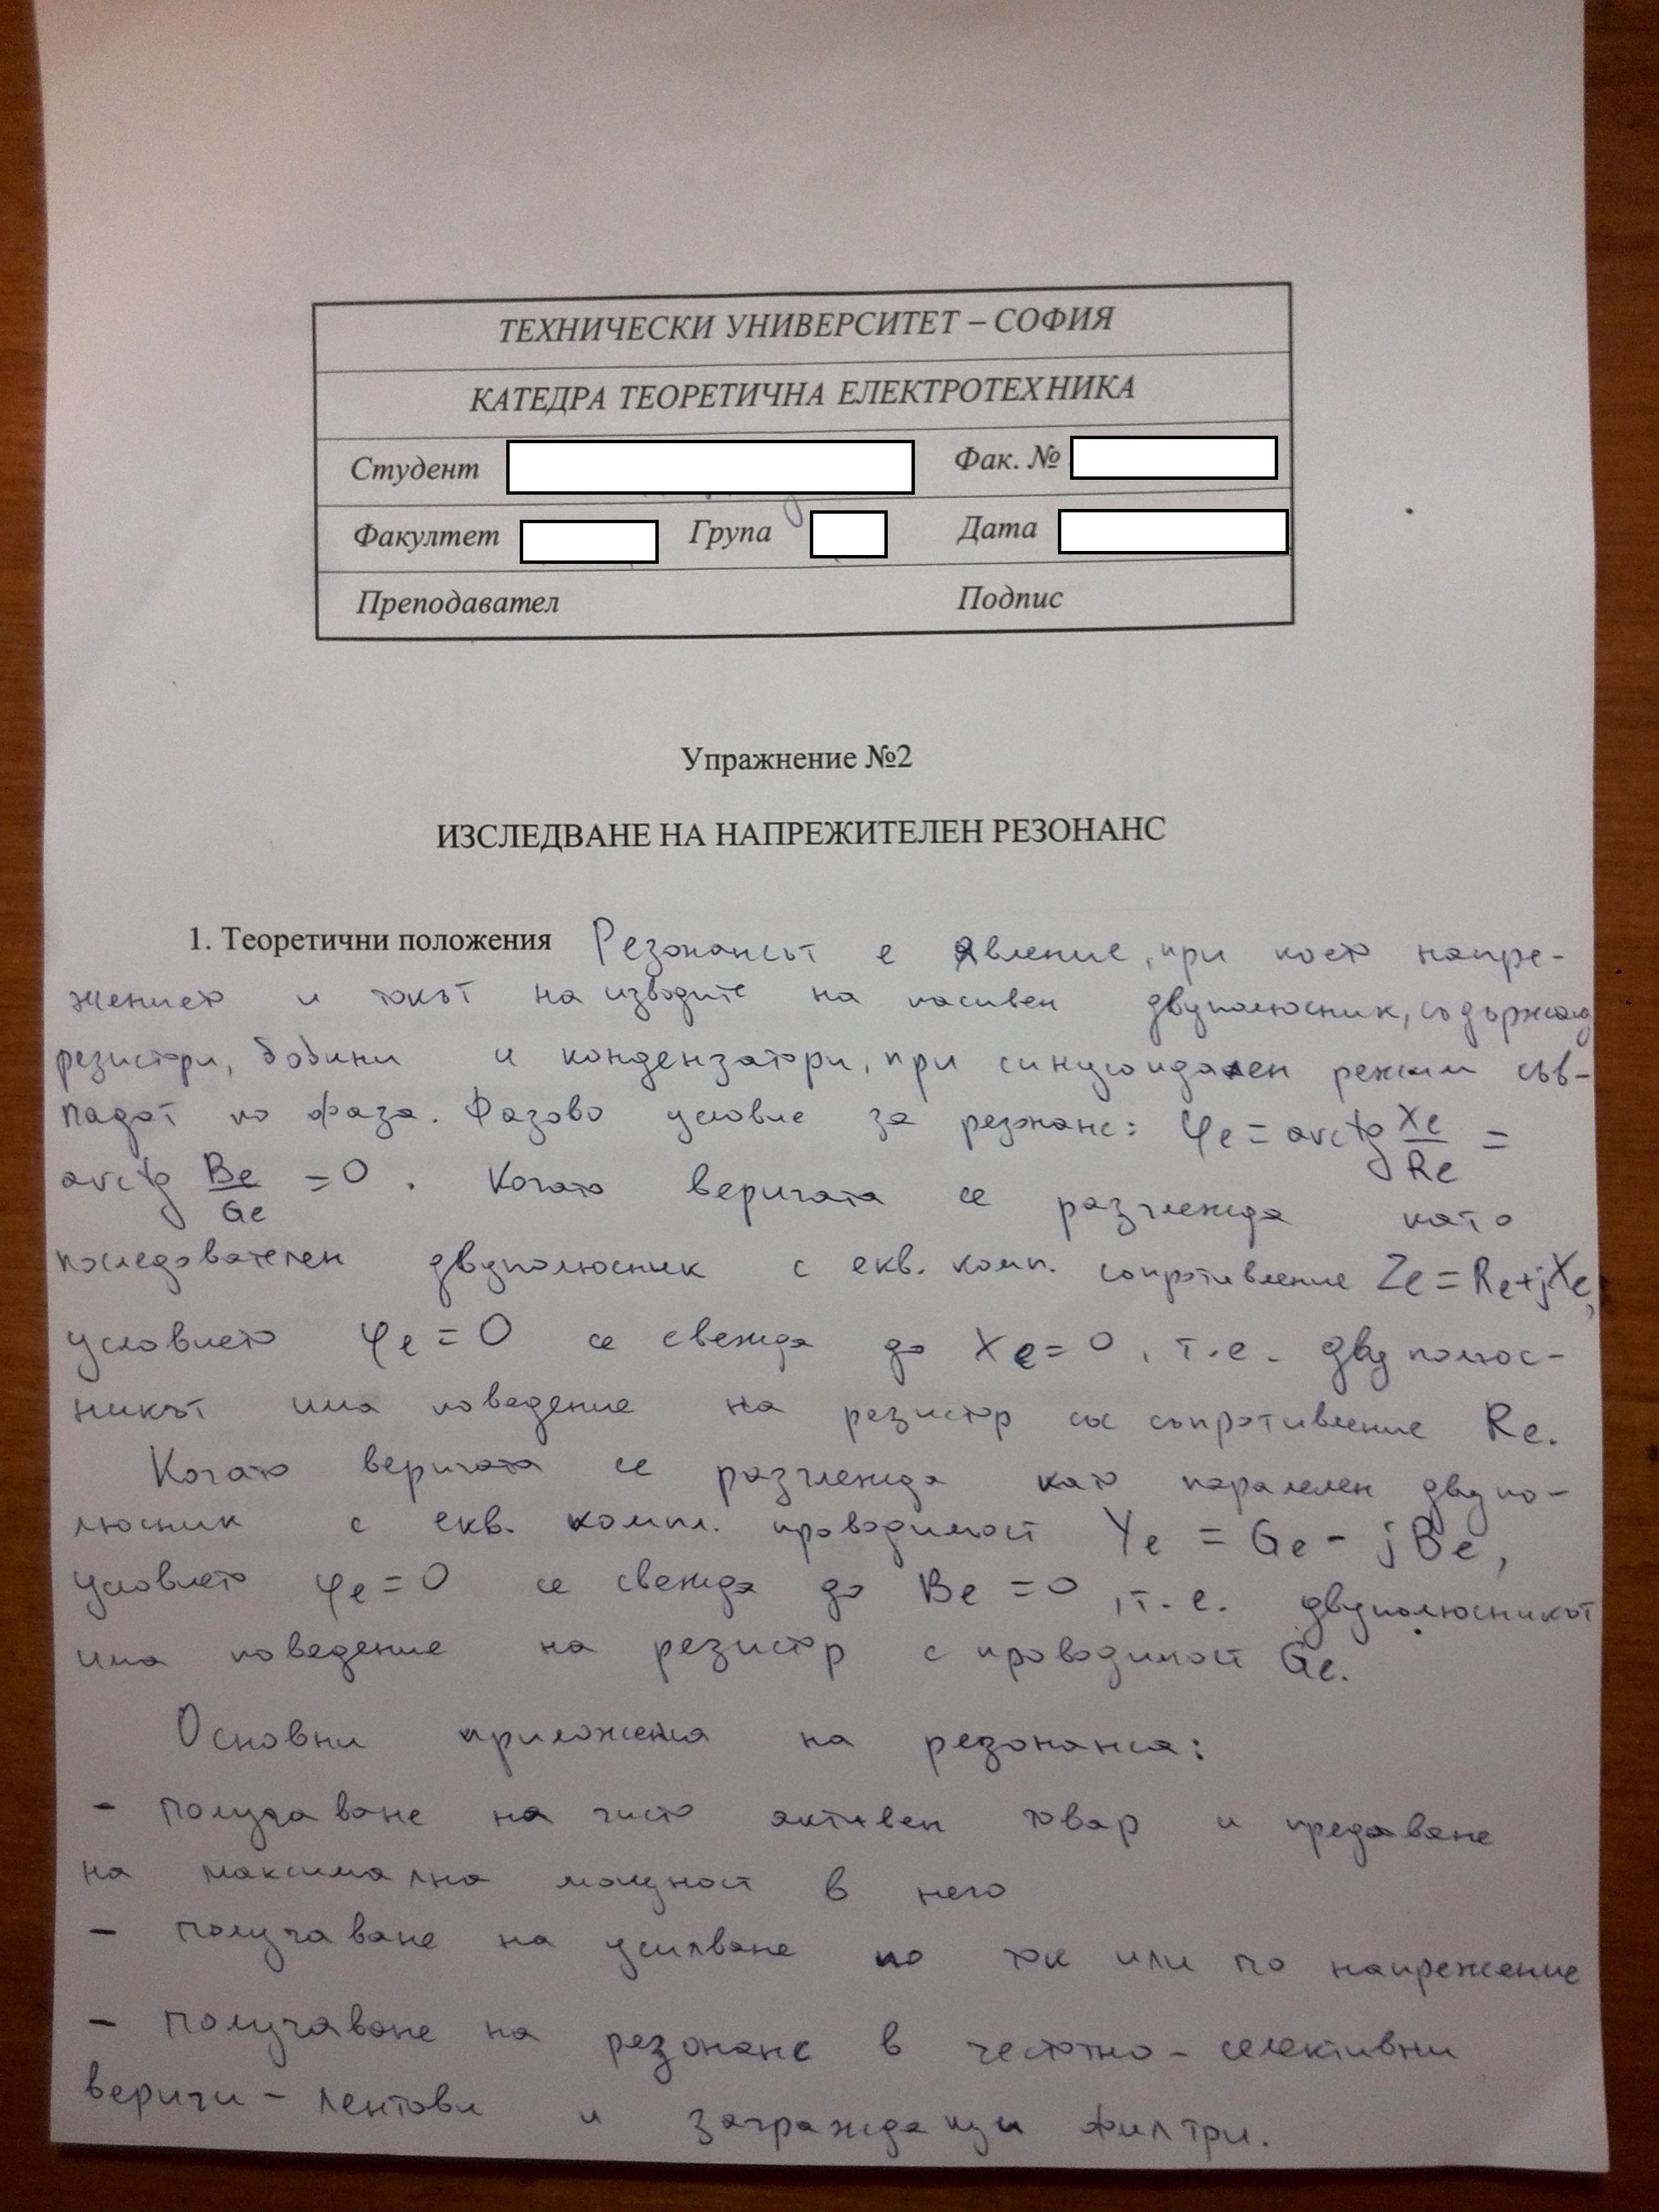 ТЕХНИЧЕСКИ УНИВЕРСИТЕТ – СОФИЯ
КАТЕДРА ТЕОРЕТИЧНА ЕЛЕКТРОТЕХНИКА
Студент Фак. №
Факултет Група Дата
Преподавател Подпис
Упражнение №2
ИЗСЛЕДВАНЕ НА НАПРЕЖИТЕЛЕН РЕЗОНАНС
1. Теоретични положения Резонансът е явление, при което напре-
жението и токът на изводите на пасивен двуполюсник, съдържащ
резистори, бобини и кондензатори, при синусоидален режим съв-
падат по фаза. Фазово условие за резонанс: φe = arctg Xe/Re =
arctg Be/Ge = 0. Когато веригата се разглежда като
последователен двуполюсник с екв. комп. сопротивление Ze = Re+jXe,
условието φe = 0 се свежда до Xe = 0, т.е. двуполюс-
никът има поведение на резистор със съпротивление Re.
Когато веригата се разглежда като паралелен двупо-
люсник с екв. компл. проводимост Ye = Ge - jBe,
условието φe = 0 се свежда до Be = 0, т.е. двуполюсникът
има поведение на резистор с проводимост Ge.
Основни приложения на резонанса:
- получаване на чисто активен товар и предаване
на максимална мощност в него
- получаване на усилване по ток или по напрежение
- получаване на резонанс в честотно - селективни
вериги - лентови и заграждащи филтри.